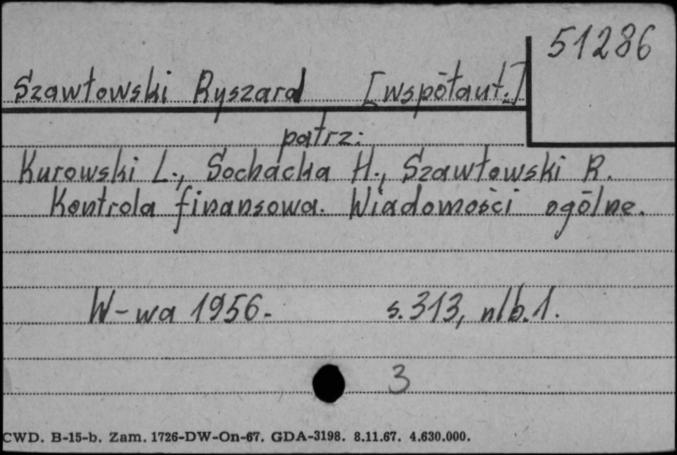 51286
Szawłowski Ryszard [współaut.]
patrz:
Kurowski L., Sochacka H., Szawłowski R.
Kontrola finansowa. Wiadomości ogólne.
W-wa 1956. s. 313, nlb. 1.
3
CWD. B-15-b. Zam. 1726-DW-On-67. GDA-3198. 8.11.67. 4.630.000.